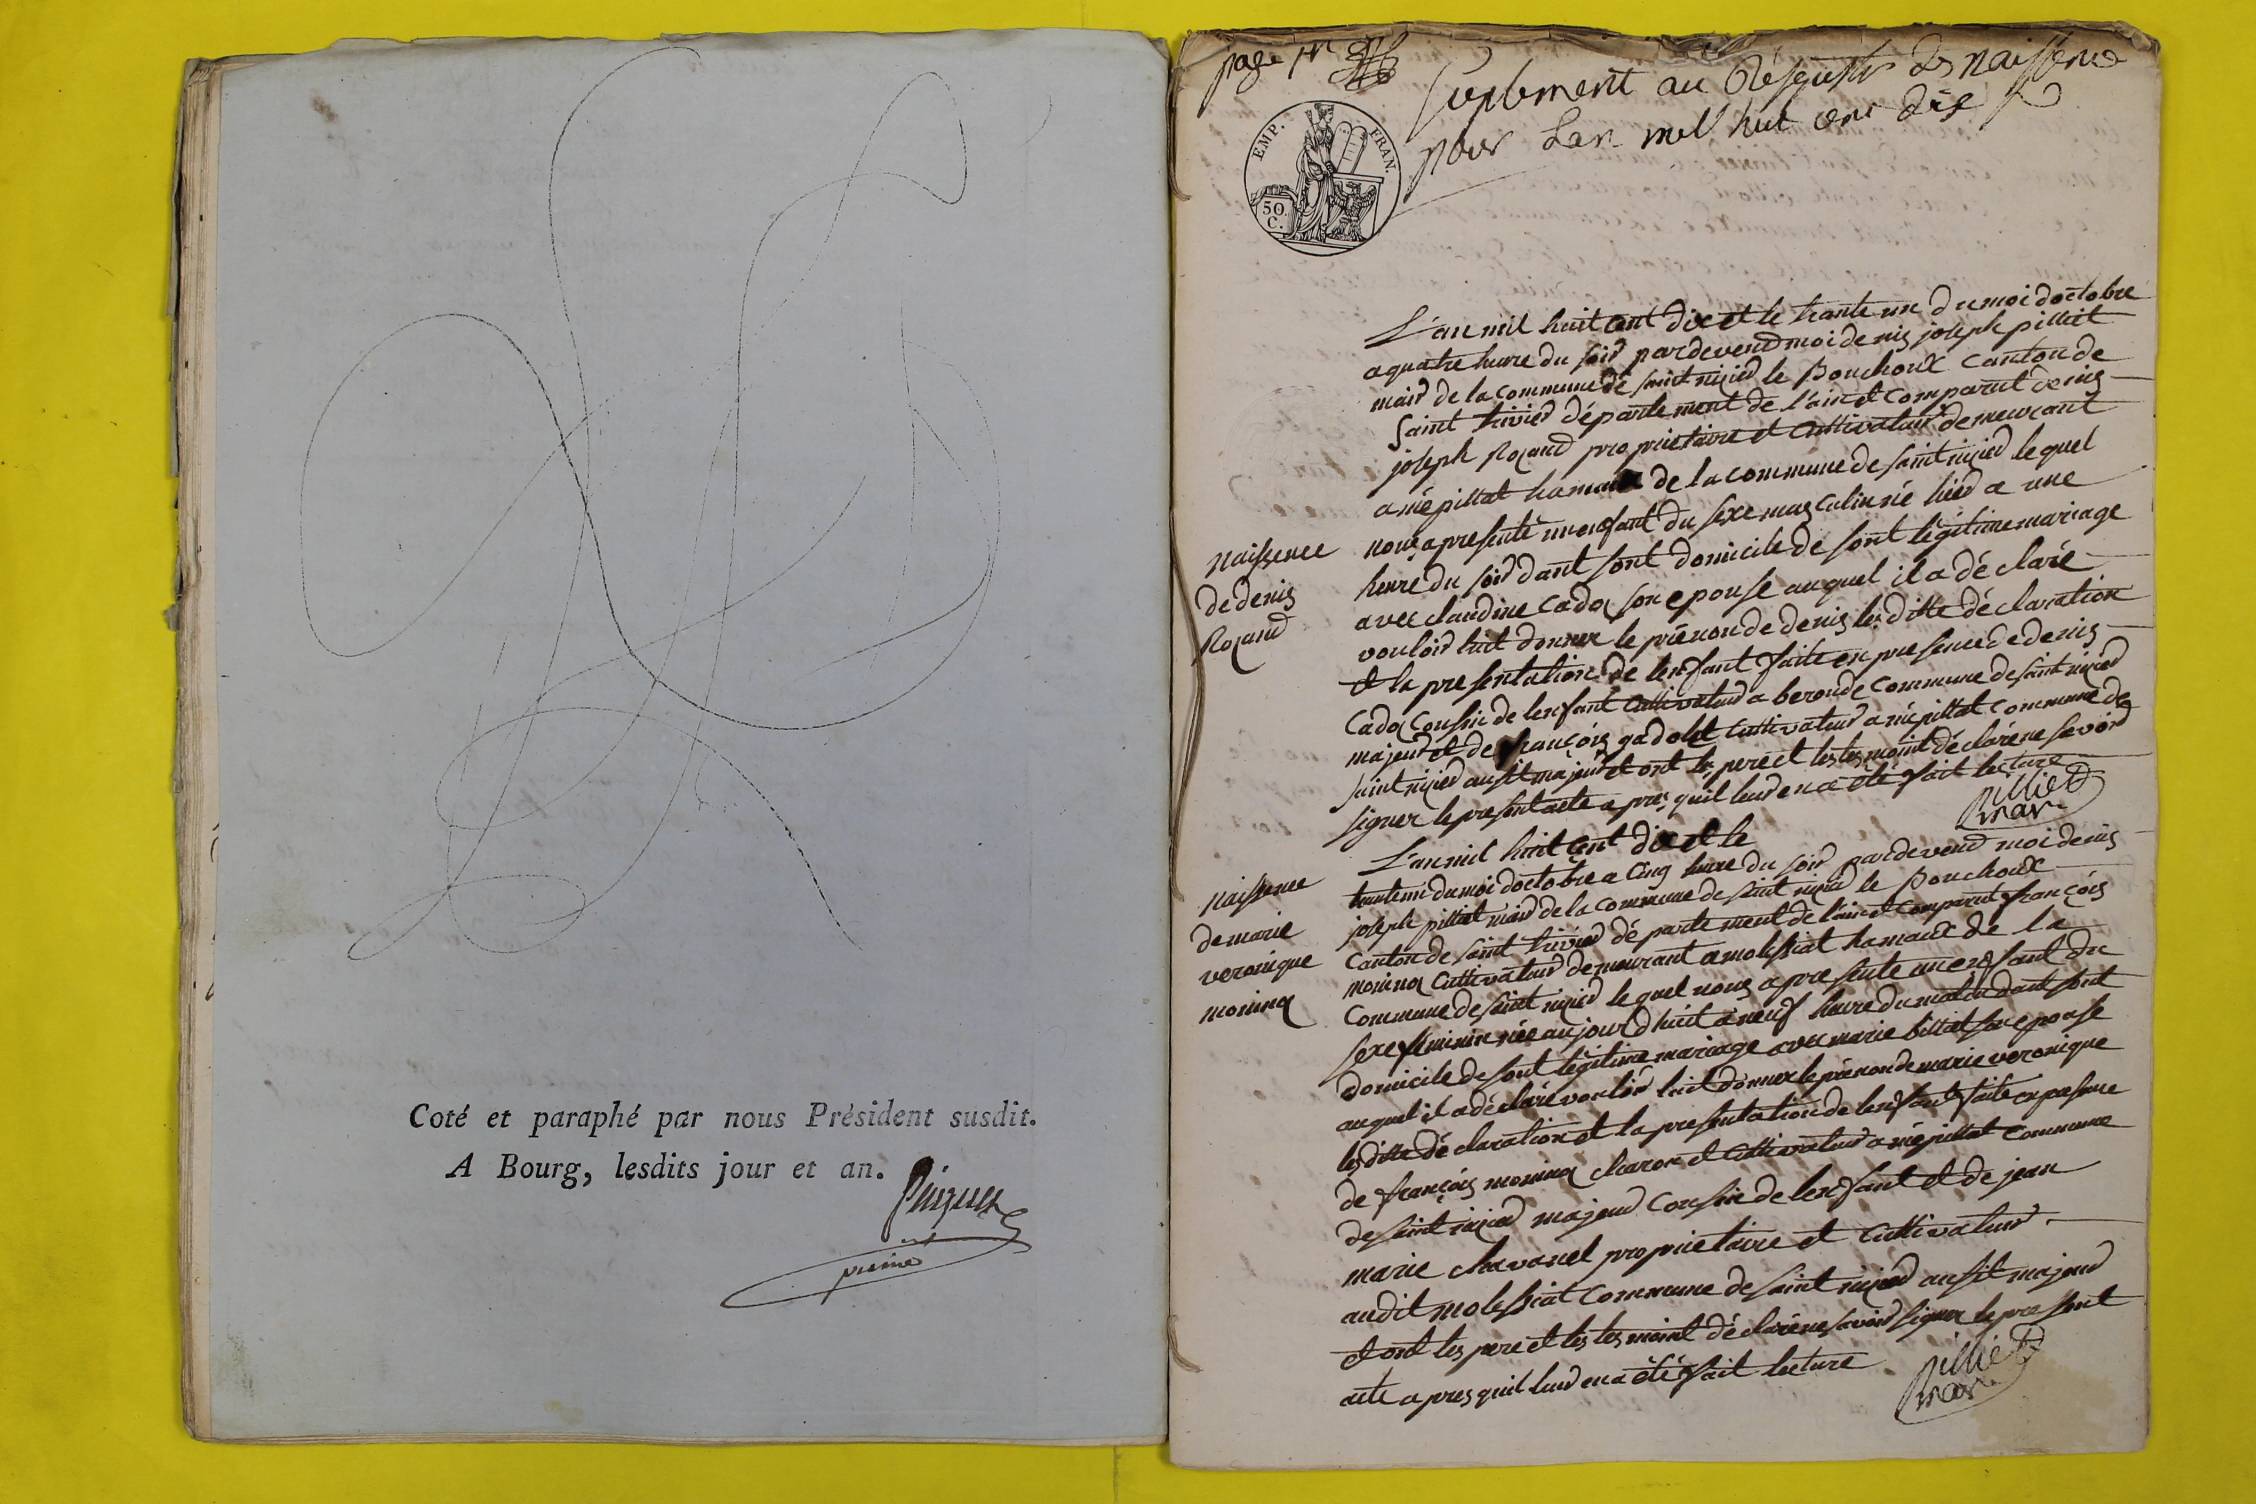 Coté et paraphé par nous Président susdit.
A Bourg, lesdits jour et an.
page 1r
Suplement au Régistre des naissence
pour Lan mil huit cent dix
EMP. FRAN.
50 C.
L'an mil huit cent dix et le trante un du moi doctobre
a quatre heure du soir pardevend moi denis joseph pilliat
mair de la commune de saint nizied le Bouchoux canton de
saint trivied département de l'ain et comparut denis
joseph Rozand propriétaire et cultivateur demeurant
a mépillat hamaux de la commune de saint nizied lequel
nous a presenté un enfant du sexe masculin né hied a une
heure du soir dant sont domicile de sont légitime mariage
avec claudine cadoz son epouse auquel il a déclaré
vouloir luit donner le prénon de denis les ditte déclaration
et la presentation de lenfant faite en presence de denis
Cadoz Cousin de lenfant cultivateur a beronde commune de saint nizied
majeur et de françois gadolet cultivateur a mépillat commune de
saint nizied aussit majeur et ont les pere et les tesmoint déclaré ne savoir
signer le present acte apres quil leur en a été fait lecture
pilliat
mair
naissence
de denis
Rozand
L'an mil huit cent dix et le
trante un du moi doctobre a cinq heure du soir pardevend moi denis
joseph pilliat mair de la commune de saint nizied le Bouchoux
canton de saint trivied département de l'ain et comparut françois
moninoz cultivateur demeurant a molissiat hamaux de la
commune de saint nizied lequel nous a presenté un enfant du
sexe féminin née aujourdhuit a neuf heure du matin dant sont
domicile de sont légitime mariage avec marie billiat son epouse
auquel il a déclaré vouloir luit donner le prénon de marie veronique
les ditte déclaration et la presentation de lenfant faite en presence
de françois moninoz charon et cultivateur a mépillat commune
de saint nizied majeur cousin de lenfant et de jean
marie chavanel proprietaire et cultivateur
audit molissiat commune de saint nizied aussit majeur
et ont les pere et les tesmoint déclaré ne savoir signer le present
acte apres quil leur en a été fait lecture
pilliat
mair
naissence
de marie
veronique
moninoz